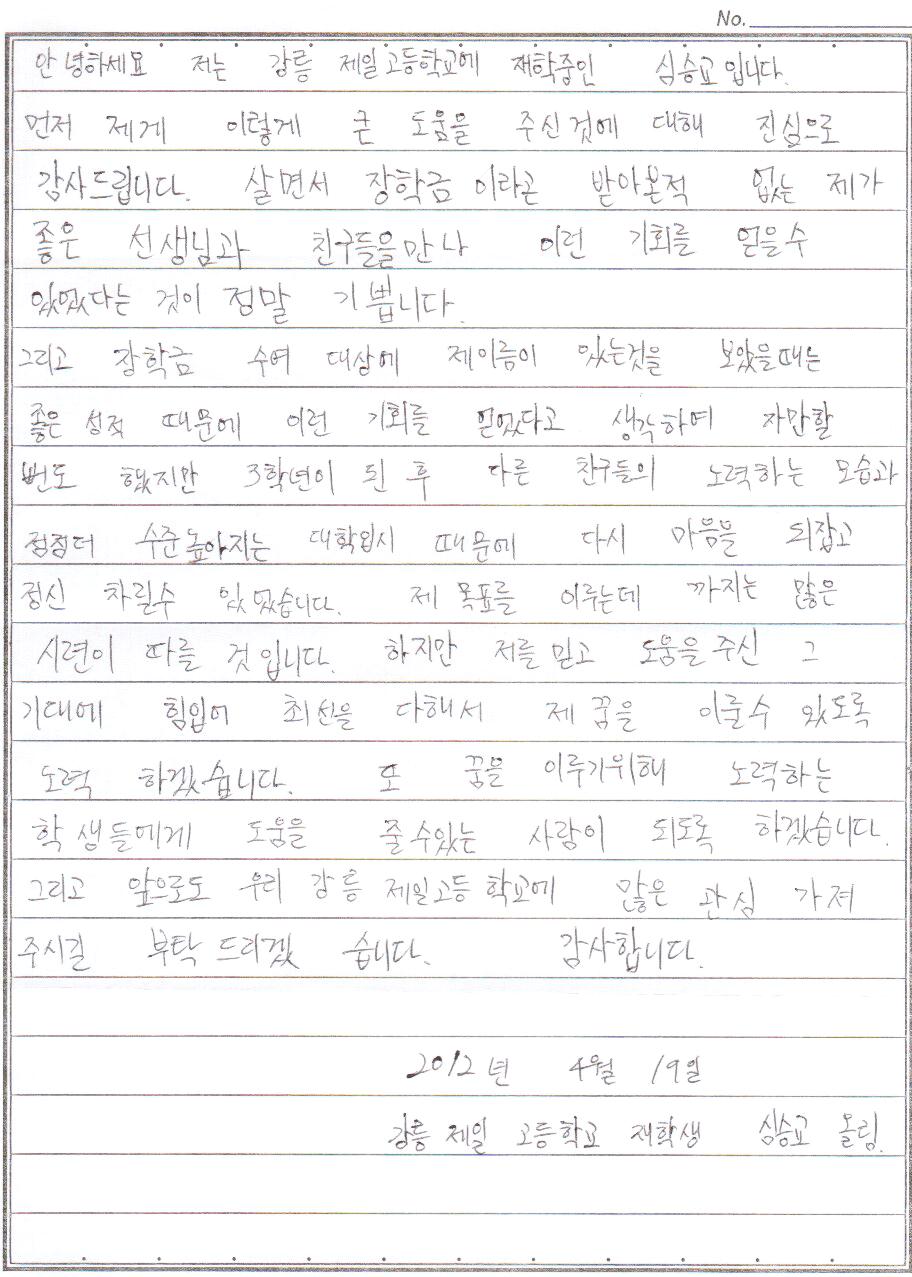 No.
안녕하세요 저는 강릉 제일고등학교에 재학중인 심승교입니다.
먼저 제게 이렇게 큰 도움을 주신것에 대해 진심으로
감사드립니다. 살면서 장학금 이라곤 받아본적 없는 제가
좋은 선생님과 친구들을만나 이런 기회를 얻을수
있었다는 것이 정말 기쁩니다.
그리고 장학금 수여 대상에 제이름이 있는것을 보았을때는
좋은 성적 때문에 이런 기회를 얻었다고 생각하며 자만할
번도 했지만 3학년이 된 후 다른 친구들의 노력하는 모습과
점점더 수준높아지는 대학입시 때문에 다시 마음을 되잡고
정신 차릴수 있었습니다. 제 목표를 이루는데 까지는 많은
시련이 따를 것 입니다. 하지만 저를 믿고 도움을 주신 그
기대에 힘입어 최선을 다해서 제 꿈을 이룰수 있도록
노력 하겠습니다. 또 꿈을 이루기위해 노력하는
학생들에게 도움을 줄수있는 사람이 되도록 하겠습니다.
그리고 앞으로도 우리 강릉 제일고등학교에 많은 관심 가져
주시길 부탁드리겠 습니다. 감사합니다.
2012년 4월 19일
강릉 제일 고등학교 재학생 심승교 올림.